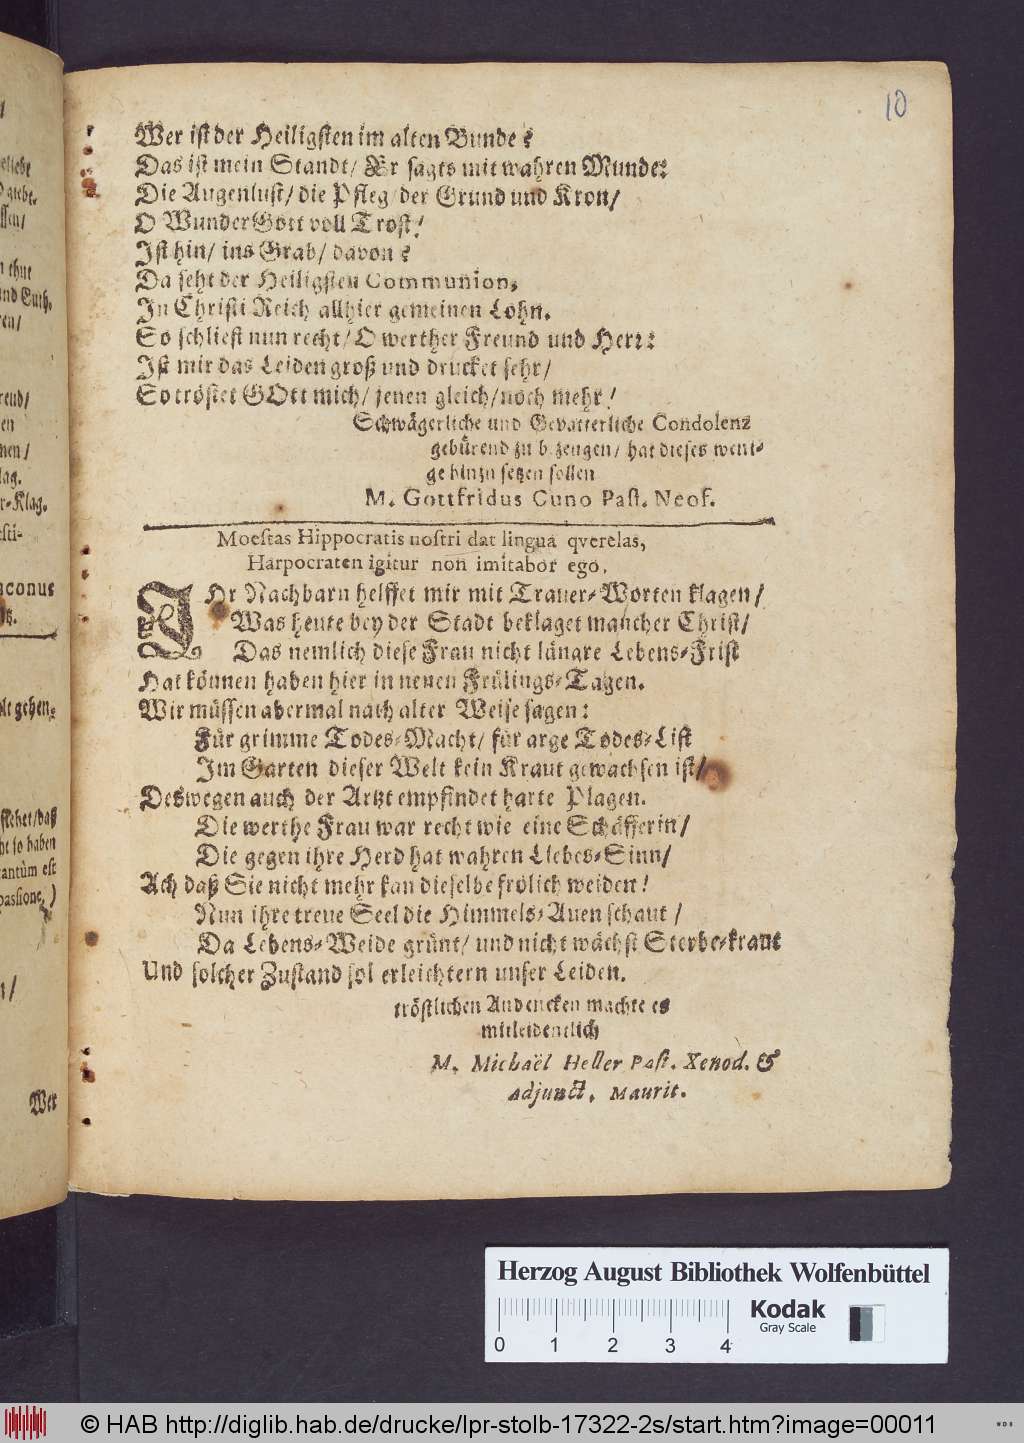 10
Wer ist der Heiligsten im alten Bunde?
Das ist mein Standt/ Er sagts mit wahren Munde:
Die Augenlust/ die Pfleg/ der Grund und Kron/
O WunderGott voll Trost!
Ist hin/ ins Grab/ davon?
Da seht der Heiligsten Communion,
In Christi Reich allhier gemeinen Lohn.
So schliest nun recht/ O werther Freund und Herr:
Ist mir das Leiden groß und drucket sehr/
So tröstet GOtt mich/ jenen gleich/ noch mehr!
Schwägerliche und Gevatterliche Condolenz
gebürend zu bezeugen/ hat dieses weni-
ge hinzu setzen sollen
M. Gottfridus Cuno Past. Neof.
Moestas Hippocratis nostri dat lingua qverelas,
Harpocraten igitur non imitabor ego.
IHr Nachbarn helffet mir mit Trauer-Worten klagen/
Was heute bey der Stadt beklaget mancher Christ/
Das nemlich diese Frau nicht längre Lebens-Frist
Hat können haben hier in neuen Frülings-Tagen.
Wir müssen abermal nach alter Weise sagen:
Für grimme Todes-Macht/ für arge Todes-List
Im Garten dieser Welt kein Kraut gewachsen ist/
Deswegen auch der Artzt empfindet harte Plagen.
Die werthe Frau war recht wie eine Schäfferin/
Die gegen ihre Herd hat wahren Liebes-Sinn/
Ach daß Sie nicht mehr kan dieselbe frölich weiden!
Nun ihre treue Seel die Himmels-Auen schaut/
Da Lebens-Weide grünt/ und nicht wächst Sterbe-kraut
Und solcher Zustand sol erleichtern unser Leiden.
tröstlichen Andencken machte es
mitleidentlich
M. Michaël Heller Past. Xenod. &
Adjunct. Maurit.
Wer
Herzog August Bibliothek Wolfenbüttel
Kodak
Gray Scale
0 1 2 3 4
© HAB http://diglib.hab.de/drucke/lpr-stolb-17322-2s/start.htm?image=00011